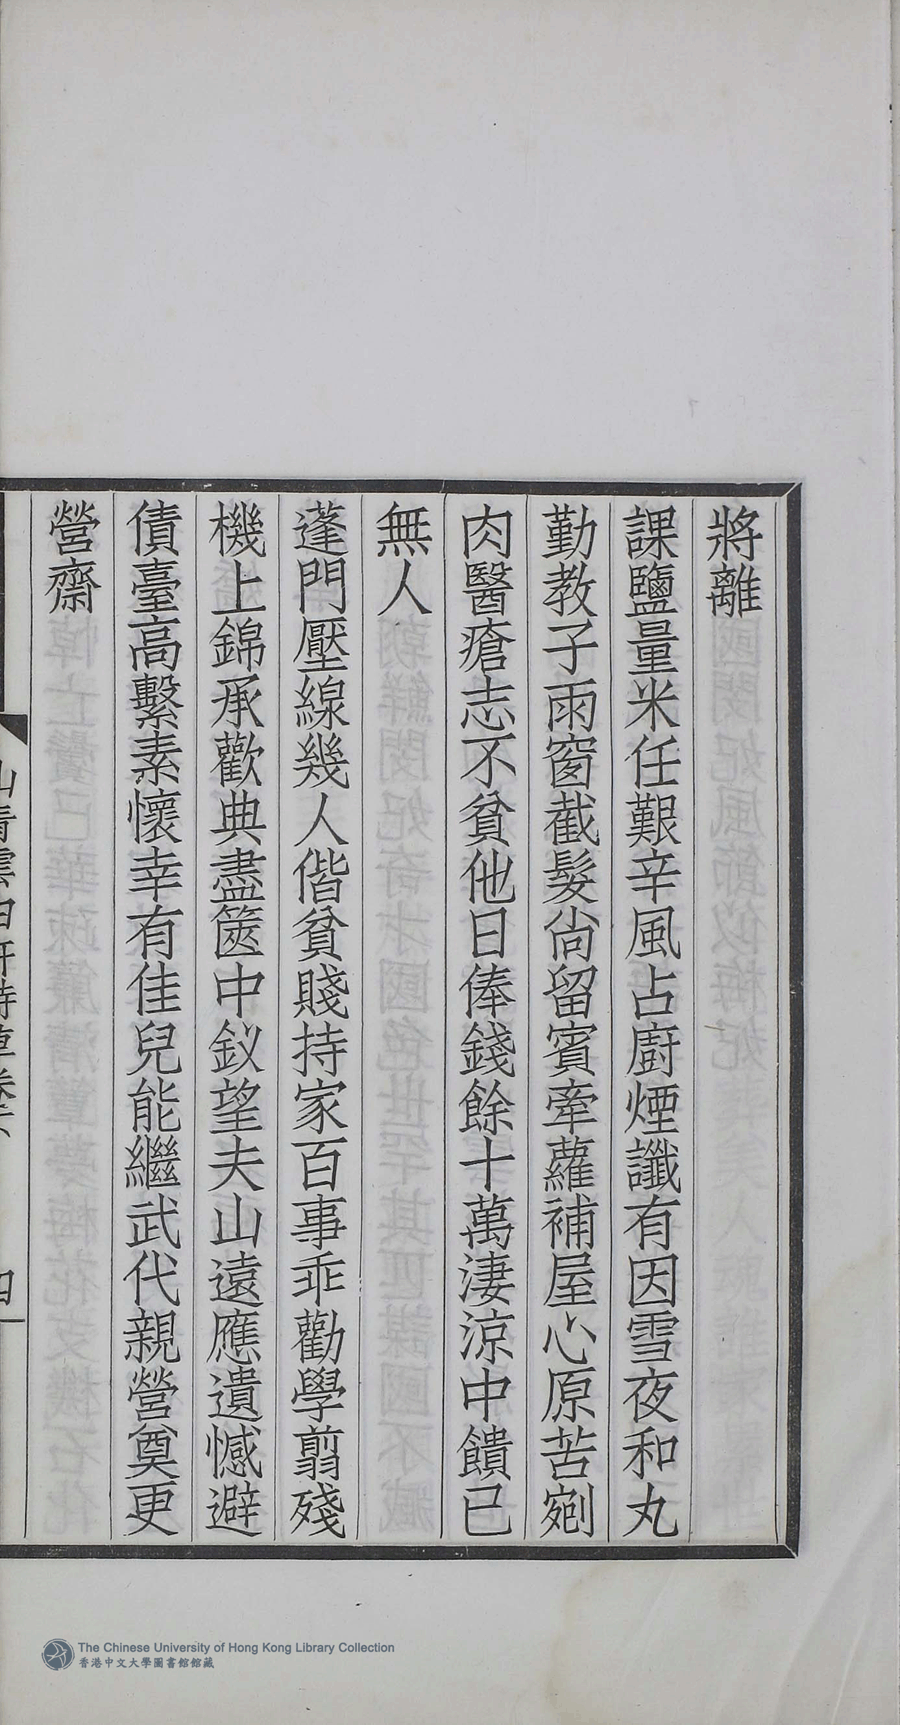 將離
課鹽量米任艱辛風占廚煙讖有因雪夜和丸
勤教子雨窗截髮尚留賓牽蘿補屋心原苦剜
肉醫瘡志不貧他日俸錢餘十萬淒涼中饋已
無人
蓬門壓線幾人偕貧賤持家百事乖勸學翦殘
機上錦承歡典盡篋中釵望夫山遠應遺憾避
債臺高繫素懷幸有佳兒能繼武代親營奠更
營齋
四
The Chinese University of Hong Kong Library Collection
香港中文大學圖書館館藏